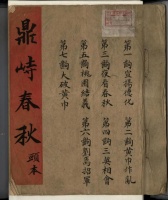 鼎峙春秋
頭本
第一齣宣揚德化
第二齣黃巾作亂
第三齣
第四齣三英相會
第五齣桃園結義
第六齣劉馬招軍
第七齣大破黃巾